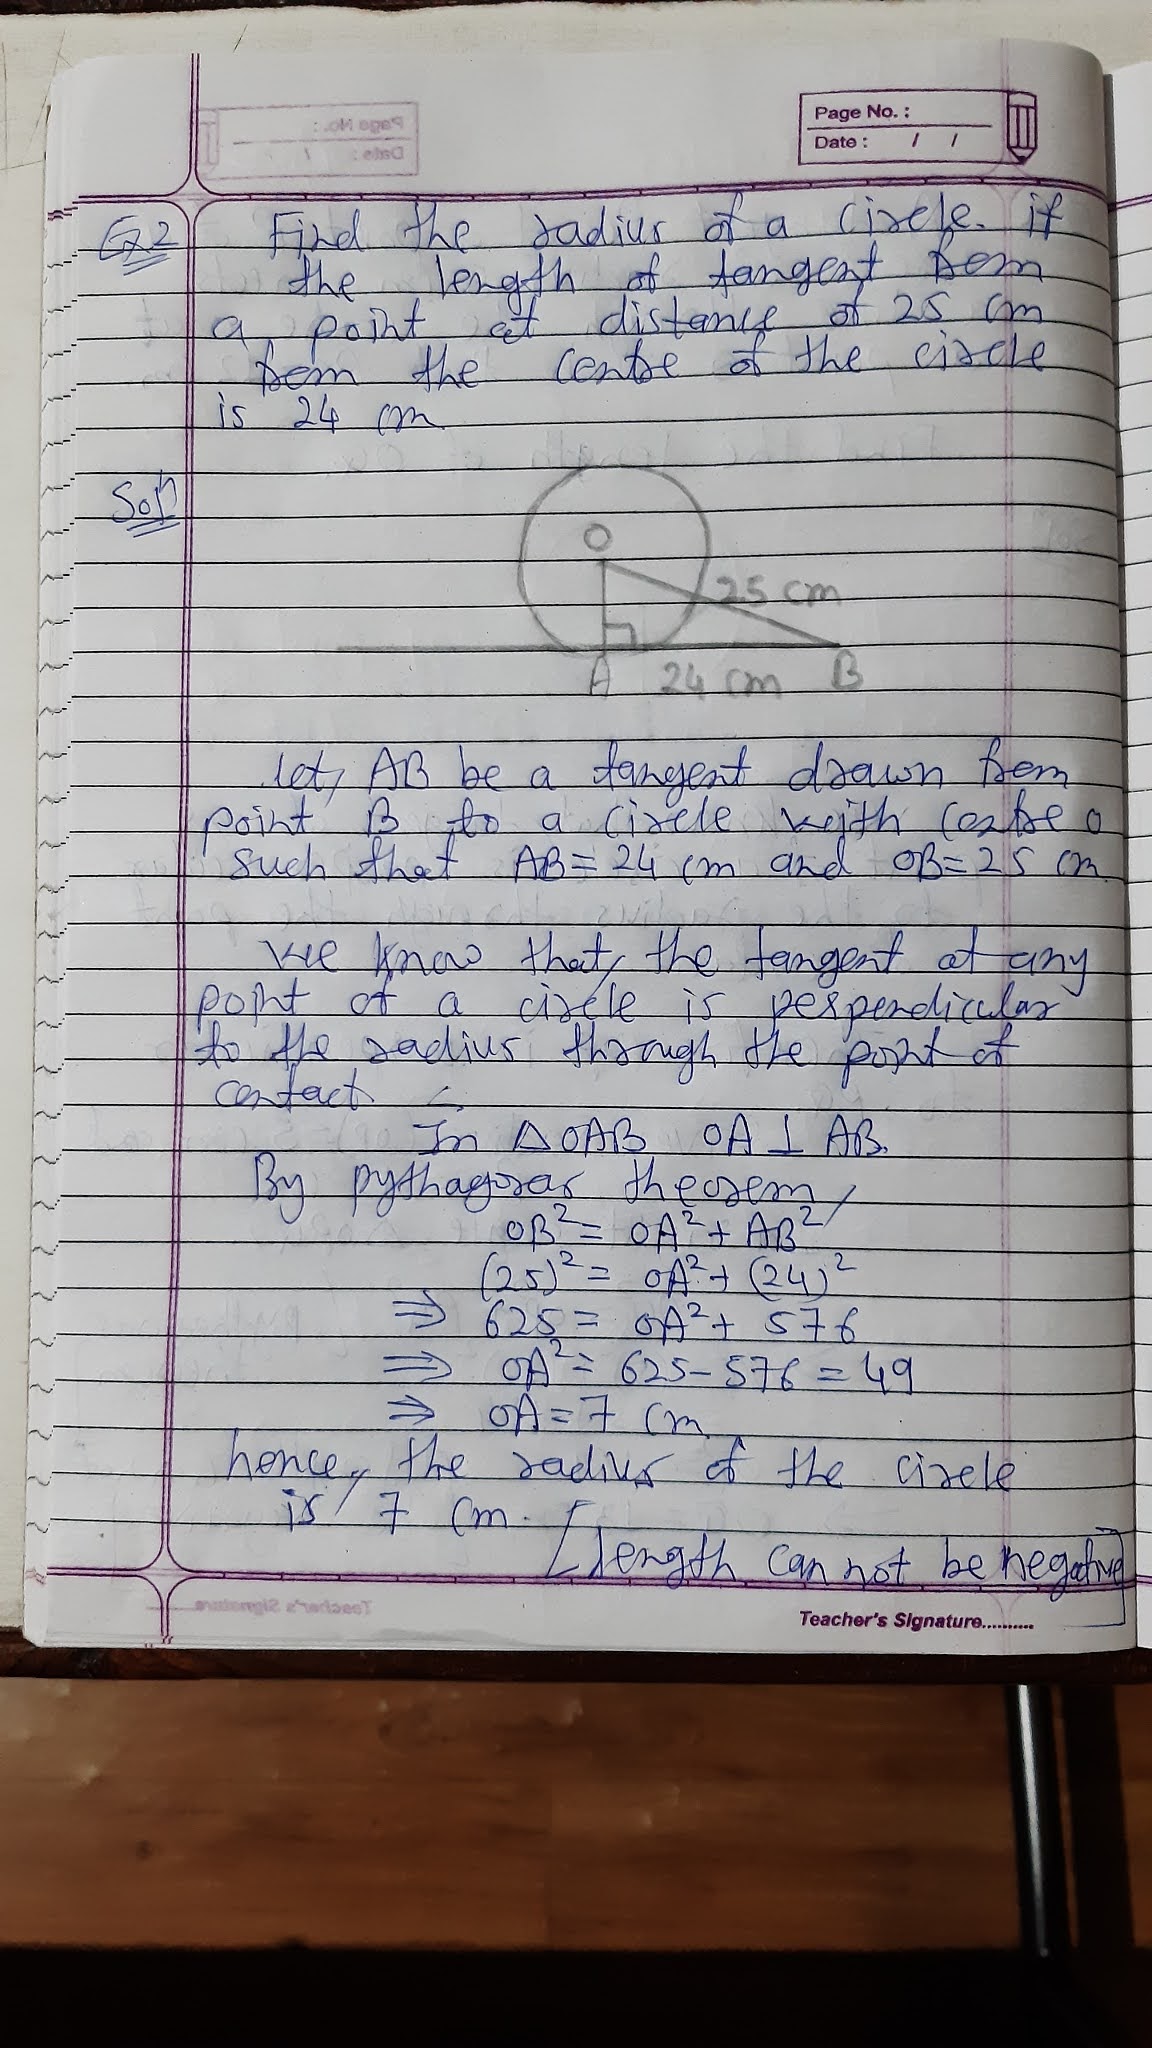 Page No. :
Date : / /
Ex 2 Find the radius of a circle. if
the length of tangent from
a point at distance of 25 cm
from the centre of the circle
is 24 cm
Soln
O
25 cm
A 24 cm B
let, AB be a tangent drawn from
point B to a circle with centre O
such that AB = 24 cm and OB = 25 cm.
we know that, the tangent at any
point of a circle is perpendicular
to the radius through the point of
contact
In △OAB OA ⊥ AB.
By pythagoras theorem,
OB² = OA² + AB²
(25)² = OA² + (24)²
⇒ 625 = OA² + 576
⇒ OA² = 625 - 576 = 49
⇒ OA = 7 cm
hence, the radius of the circle
is 7 cm. [length can not be negative]
Teacher's Signature..........